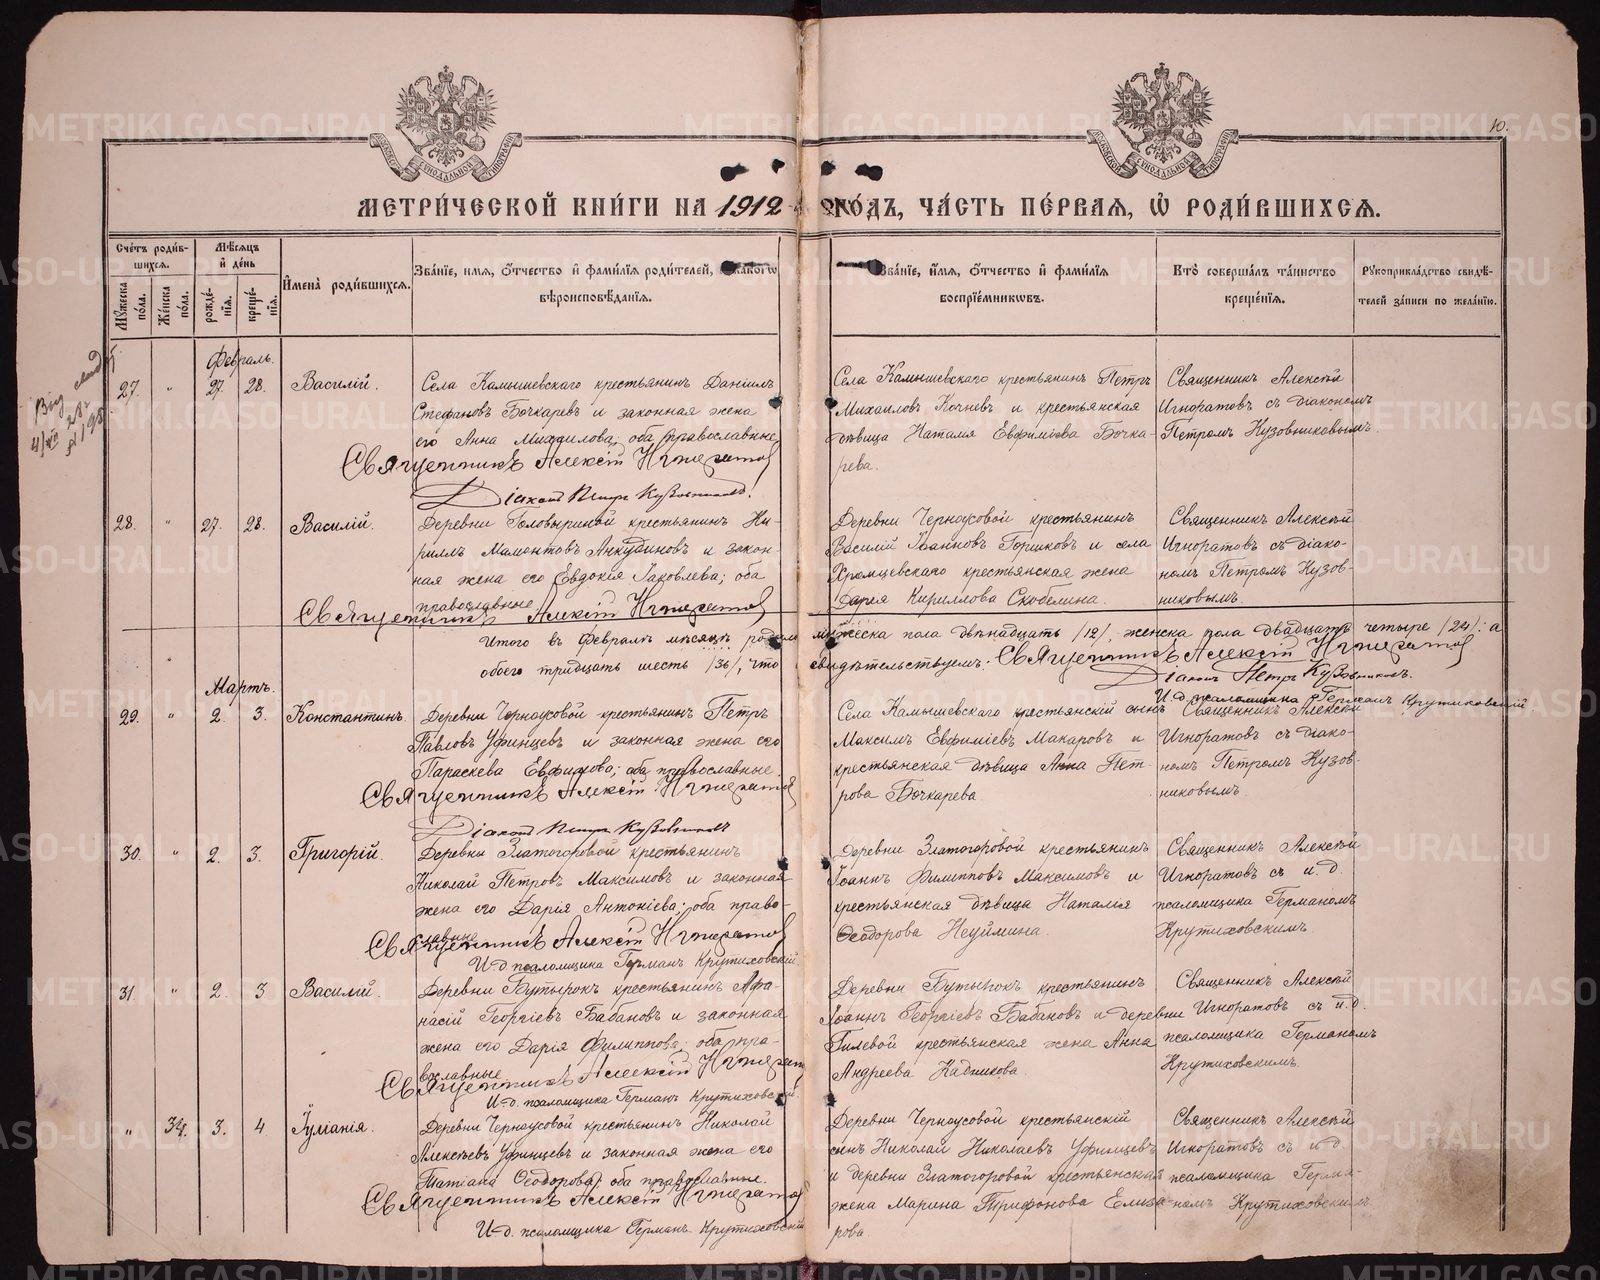 10.
МЕТРИЧЕСКОЙ КНИГИ НА 1912 ГОДЪ, ЧАСТЬ ПЕРВАЯ, Ѡ РОДИВШИХСЯ.
Счетъ родившихся.
Мужеска пола.
Женска пола.
Мѣсяцъ и день
рождения.
крещенія.
Имена родившихся.
Званіе, имя, отчество и фамилія родителей, и какого
вѣроисповѣданія.
Званіе, имя, отчество и фамилія
воспріемниковъ.
Кто совершалъ таинство
крещенія.
Рукоприкладство свидѣ-
телей записи по желанію.
Февраль.
27. " 27. 28. Василій.
Села Камышевскаго крестьянинъ Даніилъ
Стефановъ Бочкаревъ и законная жена
его Анна Михаилова, оба православные
Священникъ Алексій Игноратов
Діаконъ Петръ Кузовников.
Села Камышевскаго крестьянинъ Петръ
Михаиловъ Кочневъ и крестьянская
дѣвица Наталія Евфиміева Бочка-
рева.
Священникъ Алексій
Игноратовъ съ діакономъ
Петромъ Кузовниковымъ.
28. " 27. 28. Василій.
Деревни Головыриной крестьянинъ Ки-
риллъ Мамонтовъ Анкудиновъ и закон-
ная жена его Евдокія Іаковлева; оба
православные
Священникъ Алексій Игноратов
Деревни Черноусовой крестьянинъ
Василій Іоанновъ Горшковъ и села
Хромцевскаго крестьянская жена
Дарія Кириллова Скобелина.
Священникъ Алексій
Игноратовъ съ діако-
номъ Петромъ Кузов-
никовымъ.
Итого въ Февралѣ мѣсяцѣ мужеска пола двѣнадцать /12/, женска пола двадцать четыре /24/. а
обоего тридцать шесть /36/, что свидѣтельствуемъ: Священникъ Алексій Игноратов
Діаконъ Петръ Кузовников.
И.д. псаломщика Германъ Крутиховскій
Мартъ.
29. " 2. 3. Константинъ.
Деревни Черноусовой крестьянинъ Петръ
Павловъ Уфинцевъ и законная жена его
Параскева; оба православные.
Священникъ Алексій Игноратов
Діаконъ Петръ Кузовников
Села Камышевскаго крестьянскій сынъ
Максимъ Евфиміевъ Макаровъ и
крестьянская дѣвица Анна Пет-
рова Бочкарева.
Священникъ Алексій
Игноратовъ съ діако-
номъ Петромъ Кузов-
никовымъ.
30. " 2. 3. Григорій.
Деревни Златогоровой крестьянинъ
Николай Петровъ Максимовъ и законная
жена его Дарія Антоніева; оба право-
славные
Священникъ Алексій Игноратов
И.д. псаломщика Германъ Крутиховскій.
Деревни Златогоровой крестьянинъ
Іоаннъ Филипповъ Максимовъ и
крестьянская дѣвица Наталія
Ѳеодорова Неуймина.
Священникъ Алексій
Игноратовъ съ и.д.
псаломщика Германомъ
Крутиховскимъ
31. " 2. 3 Василій.
Деревни Бутырокъ крестьянинъ Афа-
насій Георгіевъ Бабановъ и законная
жена его Дарія Филиппова; оба пра-
вославные
Священникъ Алексій Игнорат
И.д. псаломщика Германъ Крутиховскій.
Деревни Бутырокъ крестьянинъ
Іоаннъ Георгіевъ Бабановъ и деревни
Гилевой крестьянская жена Анна
Андреева Кадникова.
Священникъ Алексій
Игноратовъ съ и.д.
псаломщика Германомъ
Крутиховскимъ.
" 34. 3. 4 Іуманія.
Деревни Черноусовой крестьянинъ Николай
Алексѣевъ Уфинцевъ и законная жена его
Татіана Ѳеодорова; оба православные.
Священникъ Алексій Игноратов
И.д. псаломщика Германъ Крутиховскій
Деревни Черноусовой крестьянскій
сынъ Николай Николаевъ Уфинцевъ
и деревни Златогоровой крестьянская
жена Марина Трифонова Елиза-
рова.
Священникъ Алексій
Игноратовъ съ и.д.
псаломщика Герма-
номъ Крутиховскимъ.
METRIKI.GASO-URAL.RU